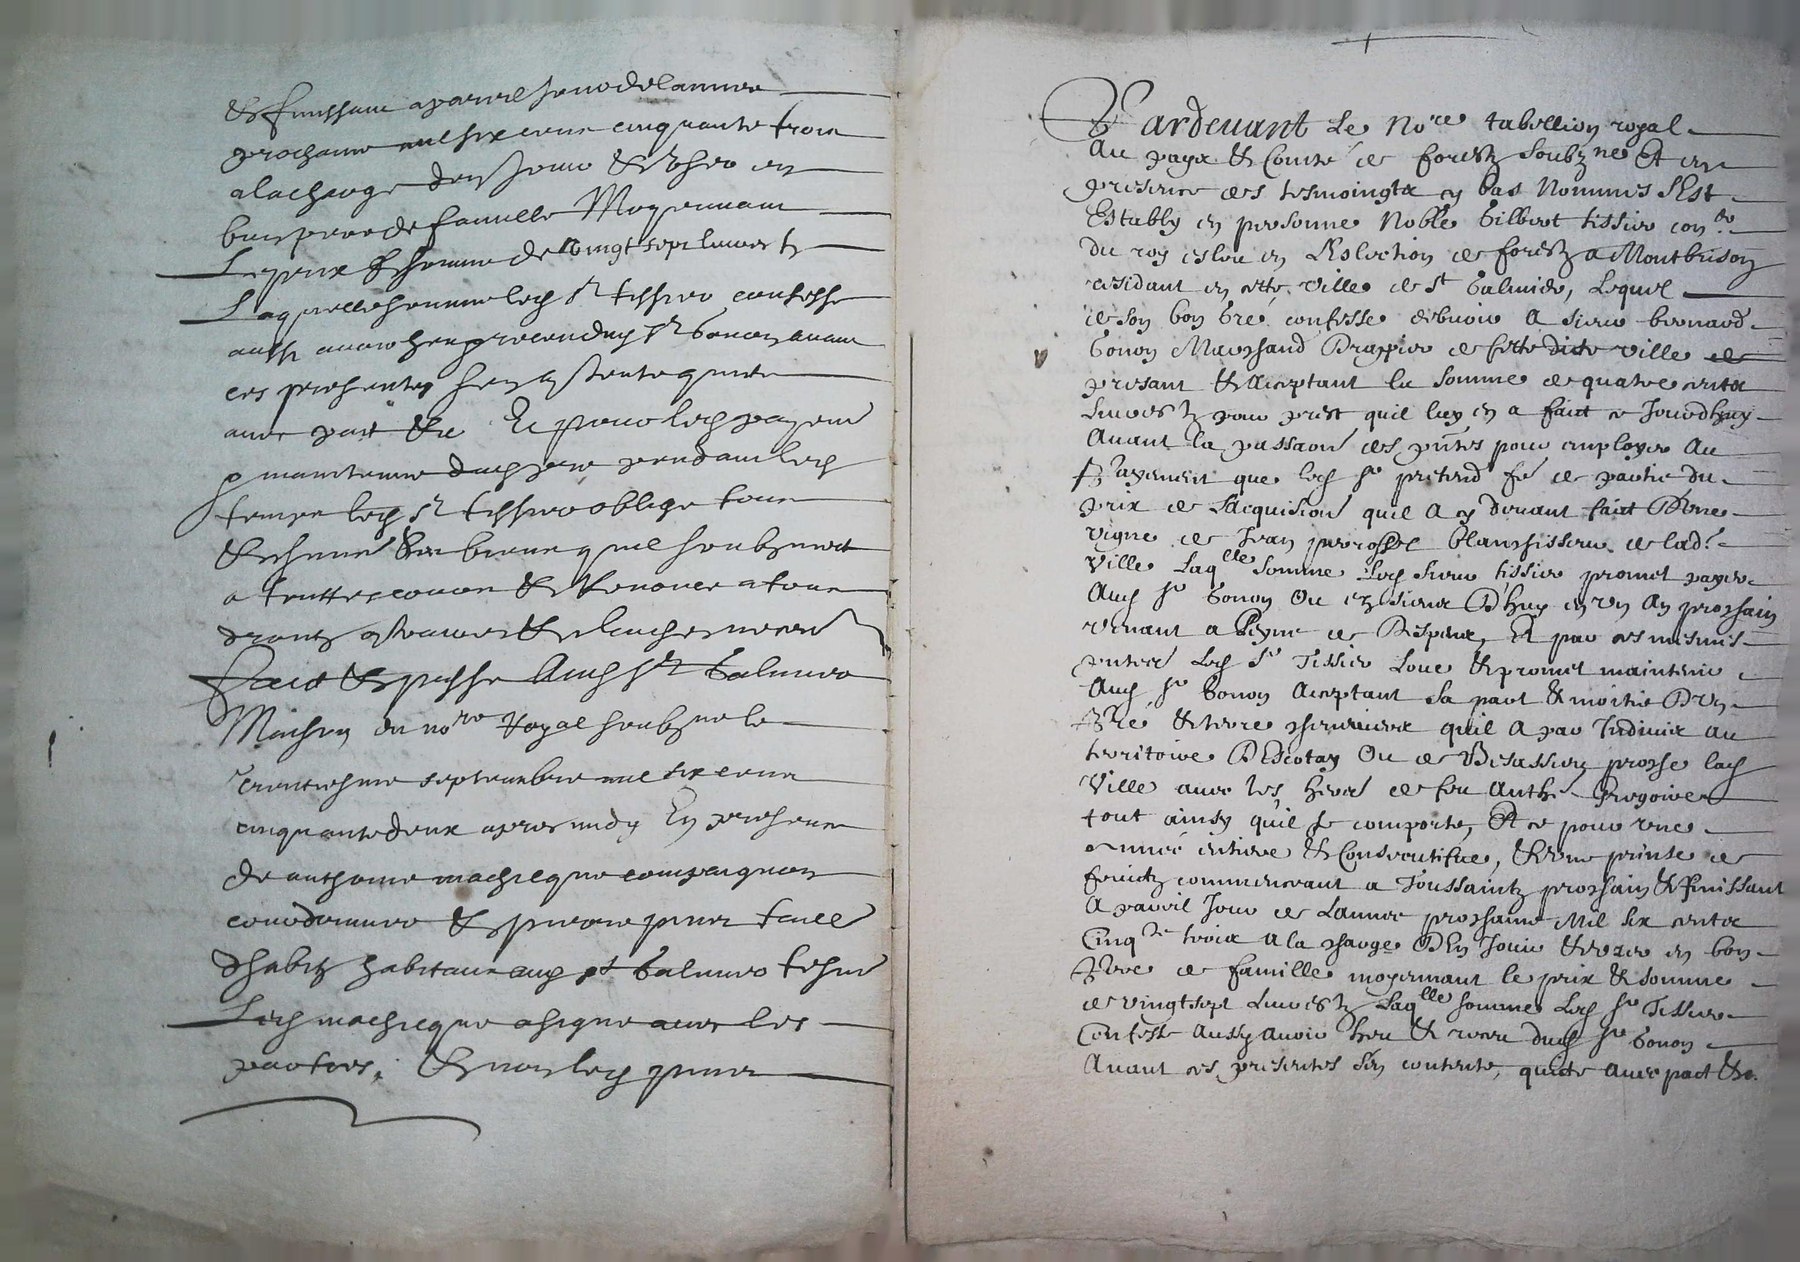 & finissant a pareil jour de lannee
prochaine mil six cens cinquante trois
a la charge den jouir & user en
bon pere de famille Moyennant
Le prix & somme de vingt sept livres tz
Laquelle somme led sr tissier confesse
aussy avoir heu & receu dud sr bonon avant
ces presentes sen contente quite
avec pact &c Et pour led payem
& maintenue dud pre pendant led
temps led sr tissier oblige tous
& chuns ses biens quil soubzmet
a touttes cours & Renonce a tous
droitz & clauses
Faict & passe Aud St Galmier
Maison du nore Royal soubzne le
trentiesme septembre mil six cens
cinquante deux apres midy En presence
de anthoine compaignon
cordonnier & pierre
dhabitz habitans aud st Galmier tesm
Led a signe avec les
parties, & non led
Pardevant Le Nore tabellion royal
Au pays & Comté de forestz soubzne Et en
presence des tesmoingtz cy bas Nommés sEst
Estably en personne Noble Gilbert tissier conér
Du roy esleu en L'Eslection de forestz a Montbrison
residant en cette ville de St Galmier, Lequel
de son bon gré confesse debvoir a sieur bernard
bonon Marchand Drappier de cette dicte ville de
presant & Acceptant la somme de quatre centz
Livres tz pour prest quil luy en a faict ce Jourdhuy
Avant la passaon des pntes pour employer Au
payement que led sr pretend fe de partie du
prix de l'acquision quil A cy devant faict D'une
vigne de Jean blanchisseur de lad.
Ville Laqlle somme Led sieur tissier promet payer
Aud sr bonon Ou es siens D'huy en Un An prochain
venant a peyne de Despens, Et par ces mesmes
pntes Led Sr Tissier Loue & promet maintenir
Aud sr bonon Acceptant sa part & moitié D'Un
pré & terre quil A par Indivix au
territoire D'Escotay Ou de proche lad
Ville avec les hers de feu Anthe
tout ainsy quil se comporte, Et ce pour Une
année entiere & Consecutifve, & Une prinse de
fruictz commencant a Toussaintz prochain & finissant
A pareil Jour de Lannee prochaine Mil six centz
Cinqte trois A la charge D'En Jouir & user en bon
pere de famille moyennant le prix & somme
de vingt sept Livres tz Laqlle somme Led sr Tissier
Confesse Aussy avoir heu & receu dud sr bonon
Avant ces presentes s'en contente, quitte avec pact &c.